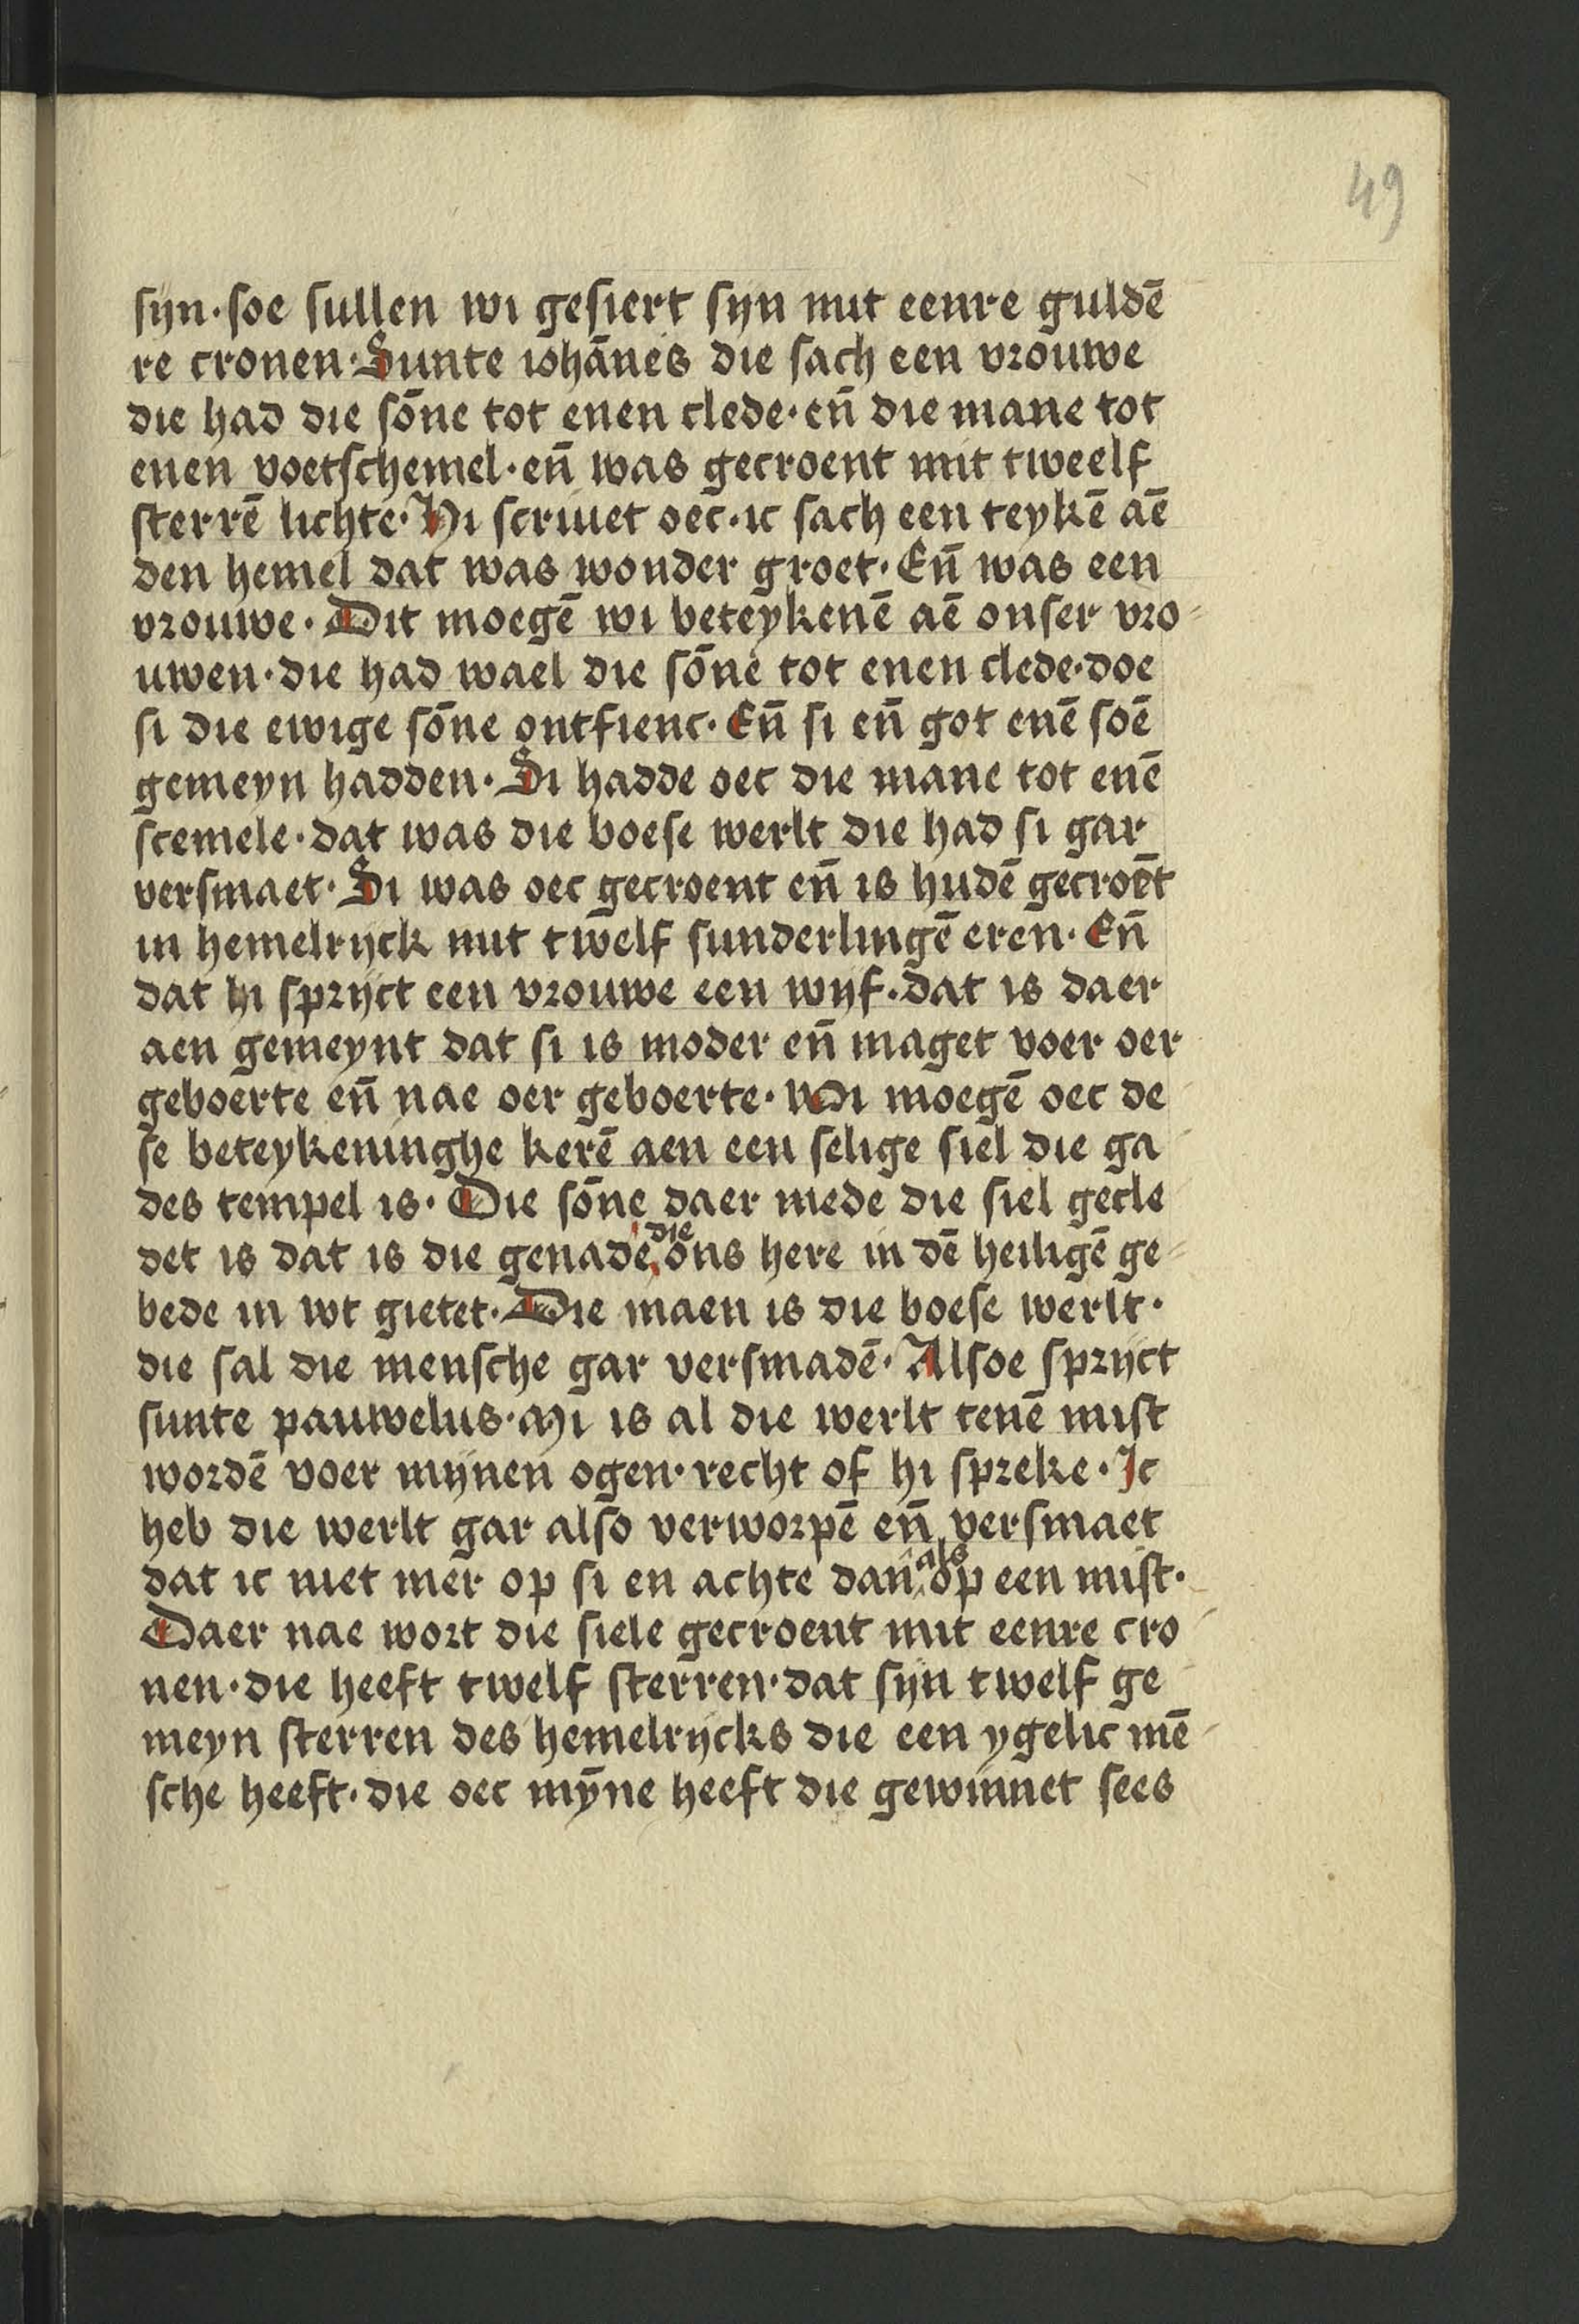 49
sijn · soe sullen wi gesiert sijn mit eenre guldē
re cronen · Sunte iohānes die sach een vrouwe
die had die sōne tot enen clede · eñ die mane tot
enen voetschemel · eñ was gecroent mit tweelf
sterrē lichte · Hi scriuet oec · ic sach een teykē aē
den hemel dat was wonder groet · Eñ was een
vrouwe · Dit moegē wi beteykenē aē onser vro-
uwen · die had wael die sōne tot enen clede · doe
si die ewige sōne ontfienc · Eñ si eñ got enē soē
gemeyn hadden · Si hadde oec die mane tot enē
scemele · dat was die boese werlt die had si gar
versmaet · Si was oec gecroent eñ is hudē gecroēt
in hemelrijck mit twelf sunderlingē eren · Eñ
dat hi sprijct een vrouwe een wijf · dat is daer
aen gemeynt dat si is moder eñ maget voer oer
geboerte eñ nae oer geboerte · Wi moegē oec de-
se beteykeninghe kerē aen een selige siel die ga-
des tempel is · Die sōne daer mede die siel gecle-
det is dat is die genade die ons here in dē heiligē ge-
bede in wt gietet · Die maen is die boese werlt ·
die sal die mensche gar versmadē · Alsoe sprijct
sunte pauwelus · Mi is al die werlt tenē mist
wordē voer mijnen ogen · recht of hi spreke · Ic
heb die werlt gar also verworpē eñ versmaet
dat ic niet mer op si en achte dan als op een mist ·
Daer nae wort die siele gecroent mit eenre cro-
nen · die heeft twelf sterren · dat sijn twelf ge-
meyn sterren des hemelrijcks die een ygelic mē-
sche heeft · die oec mȳne heeft die gewinnet sees